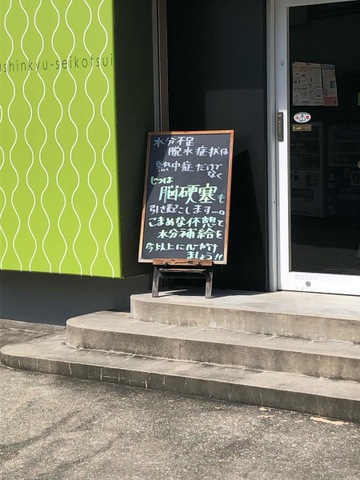 shinkyu-seikotsui
水分不足
脱水症状は
熱中症だけで
なく
じつは
脳硬塞も
引き起こします…。
こまめな休憩と
水分補給を
今以上に心がけ
ましょう!!